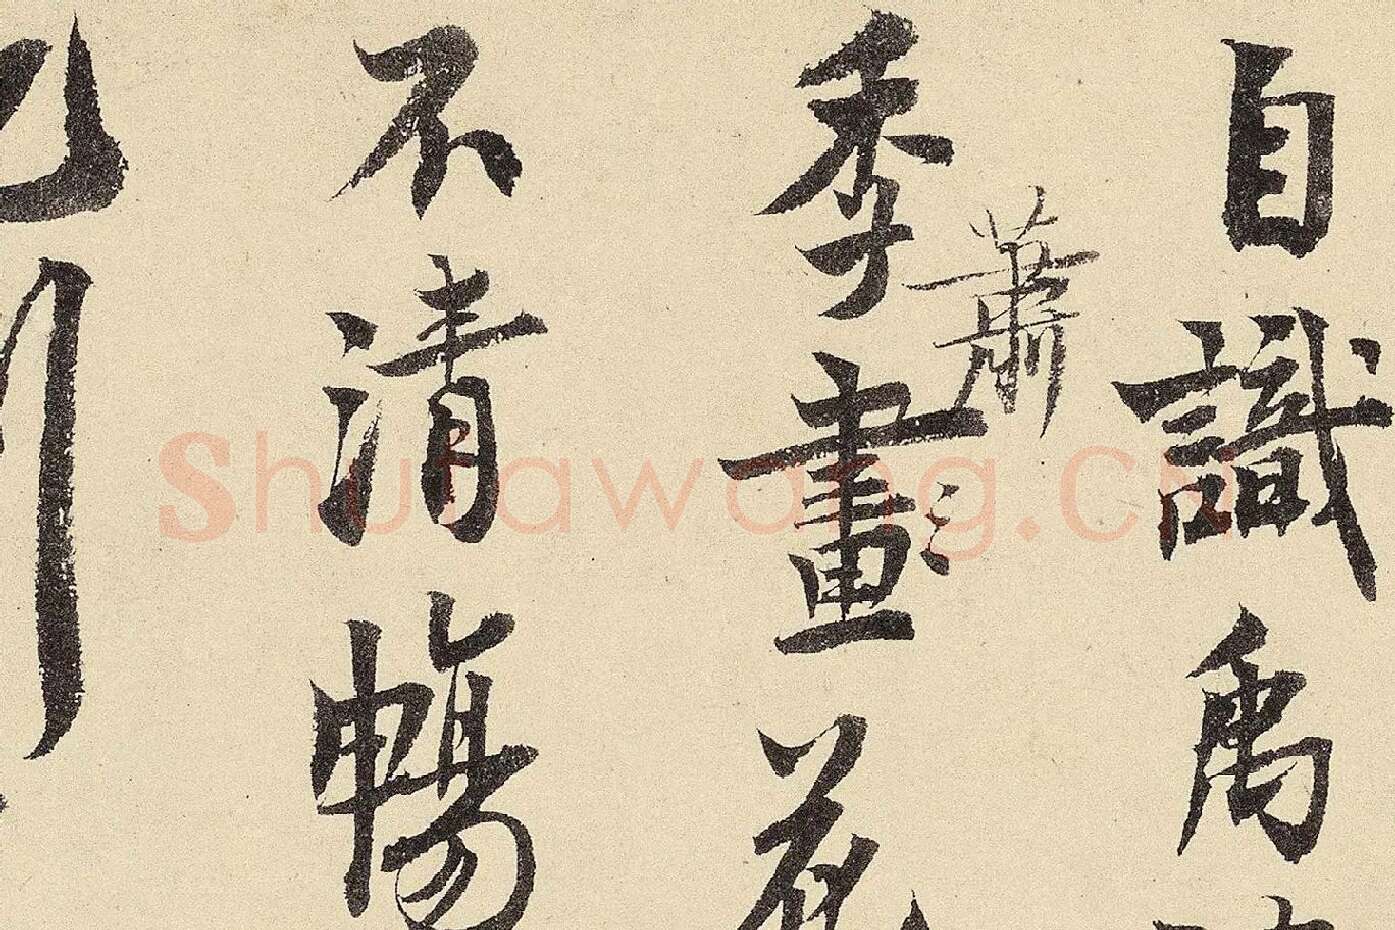 自識禹
蕭
季畫花
不清暢
Shufawang.CN